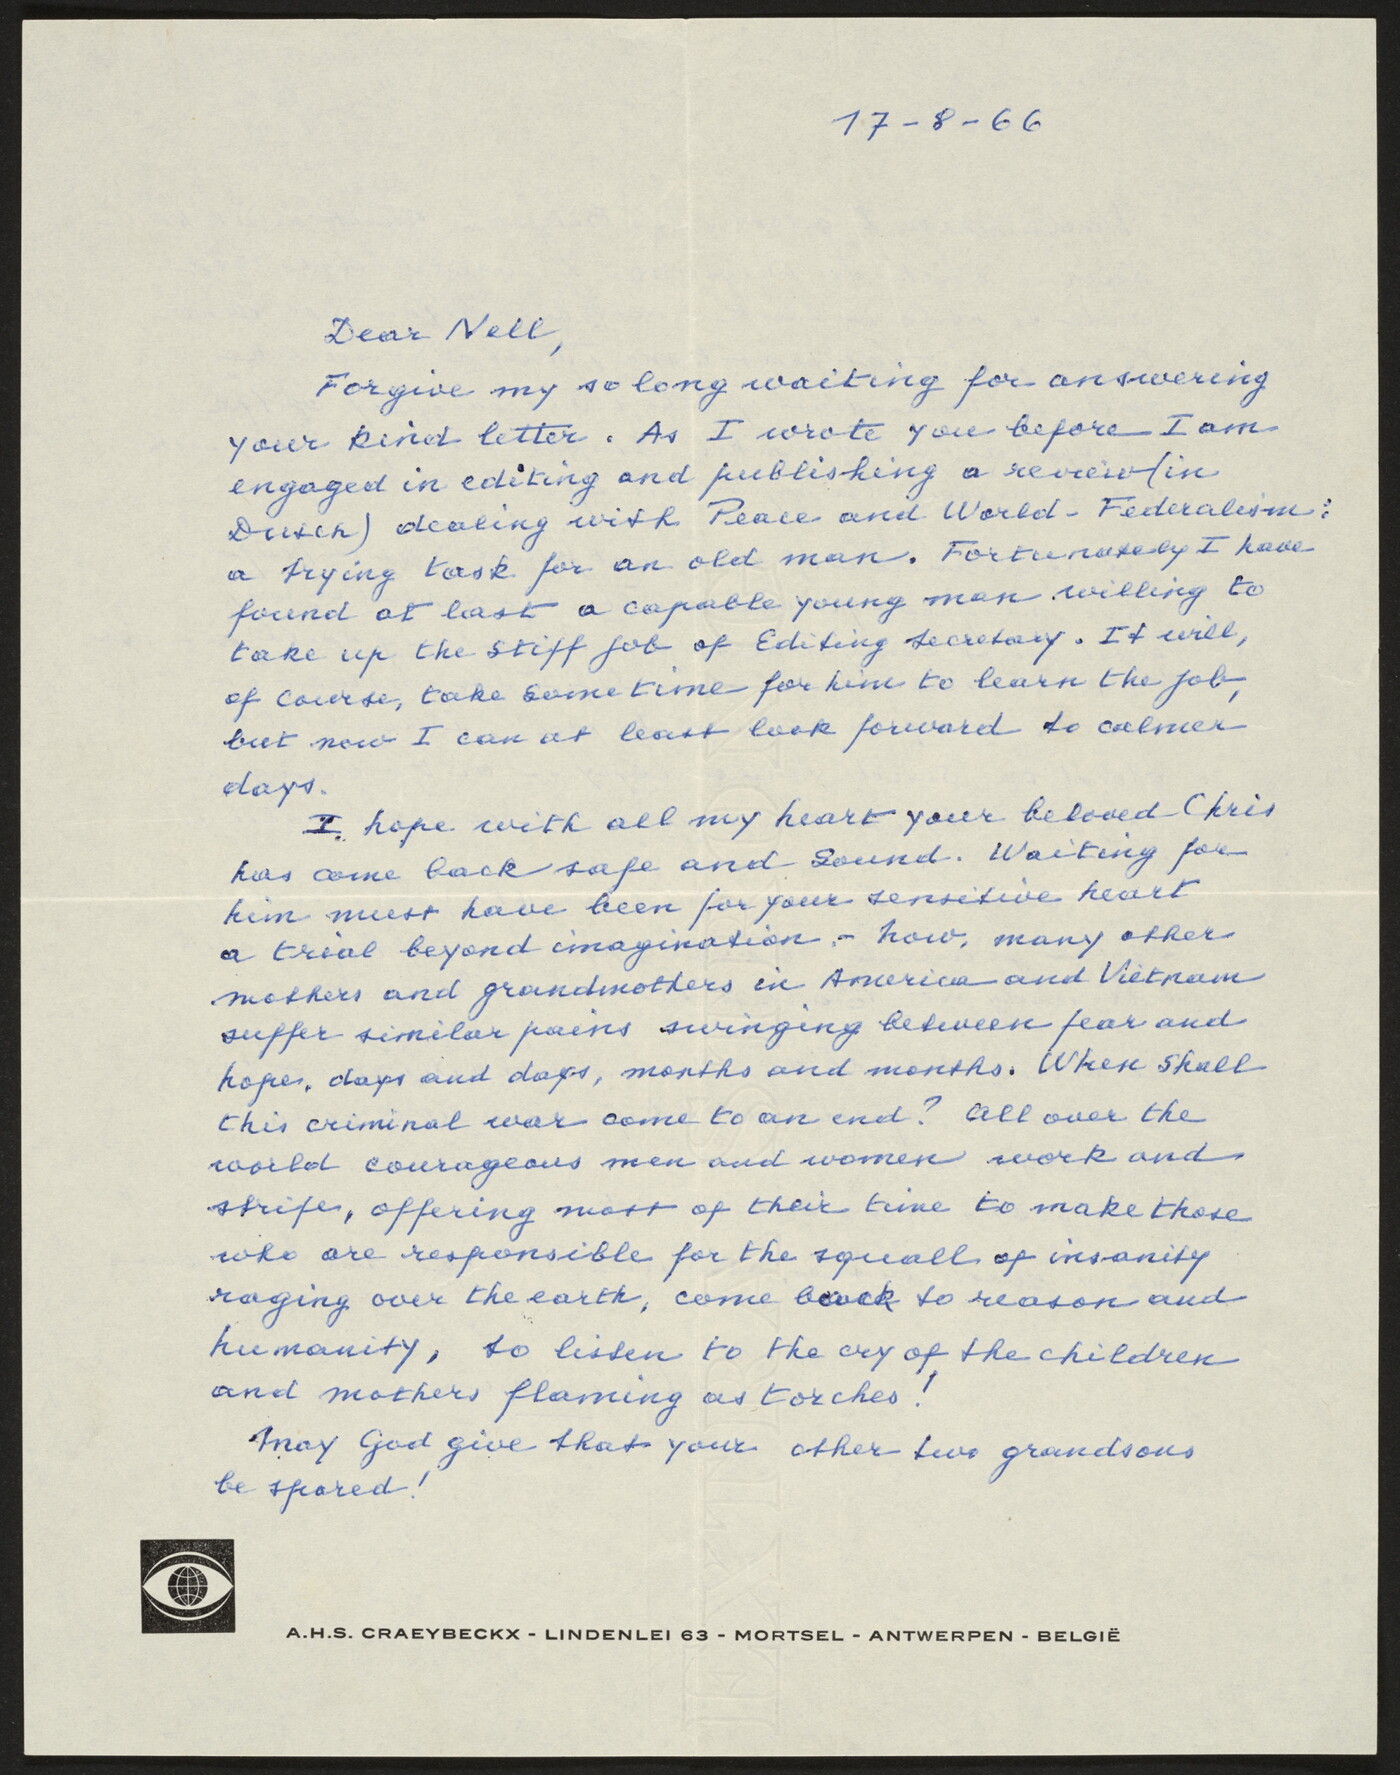 17-8-66
Dear Nell,
Forgive my so long waiting for answering
your kind letter. As I wrote you before I am
engaged in editing and publishing a review (in
Dutch) dealing with Peace and World-Federalism:
a trying task for an old man. Fortunately I have
found at last a capable young man willing to
take up the stiff job of Editing secretary. It will,
of course, take some time for him to learn the job,
but now I can at least look forward to calmer
days.
I hope with all my heart your beloved Chris
has come back safe and sound. Waiting for
him must have been for your sensitive heart
a trial beyond imagination. - how, many other
mothers and grandmothers in America and Vietnam
suffer similar pains swinging between fear and
hope, days and days, months and months. When shall
this criminal war come to an end? All over the
world courageous men and women work and
strife, offering most of their time to make those
who are responsible for the squall of insanity
raging over the earth, come back to reason and
humanity, to listen to the cry of the children
and mothers flaming as torches!
May God give that your other two grandsons
be spared!
A.H.S. CRAEYBECKX - LINDENLEI 63 - MORTSEL - ANTWERPEN - BELGIË